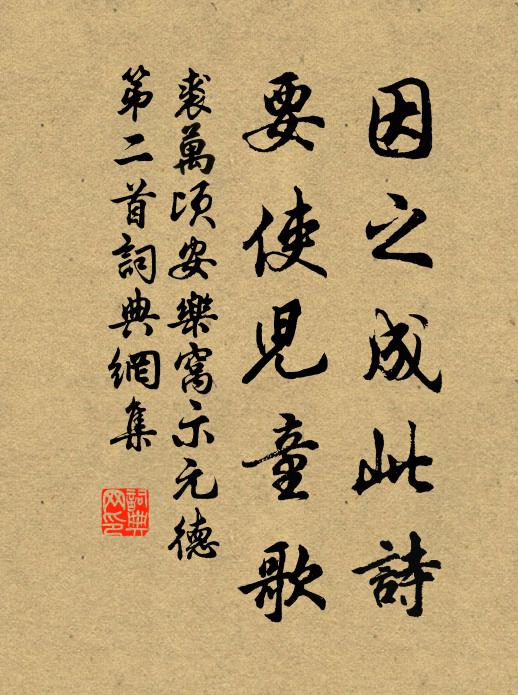 因之成此詩
要使兒童歌
裘萬頃安樂窩示元德
第二首詞典網集
詞典网印